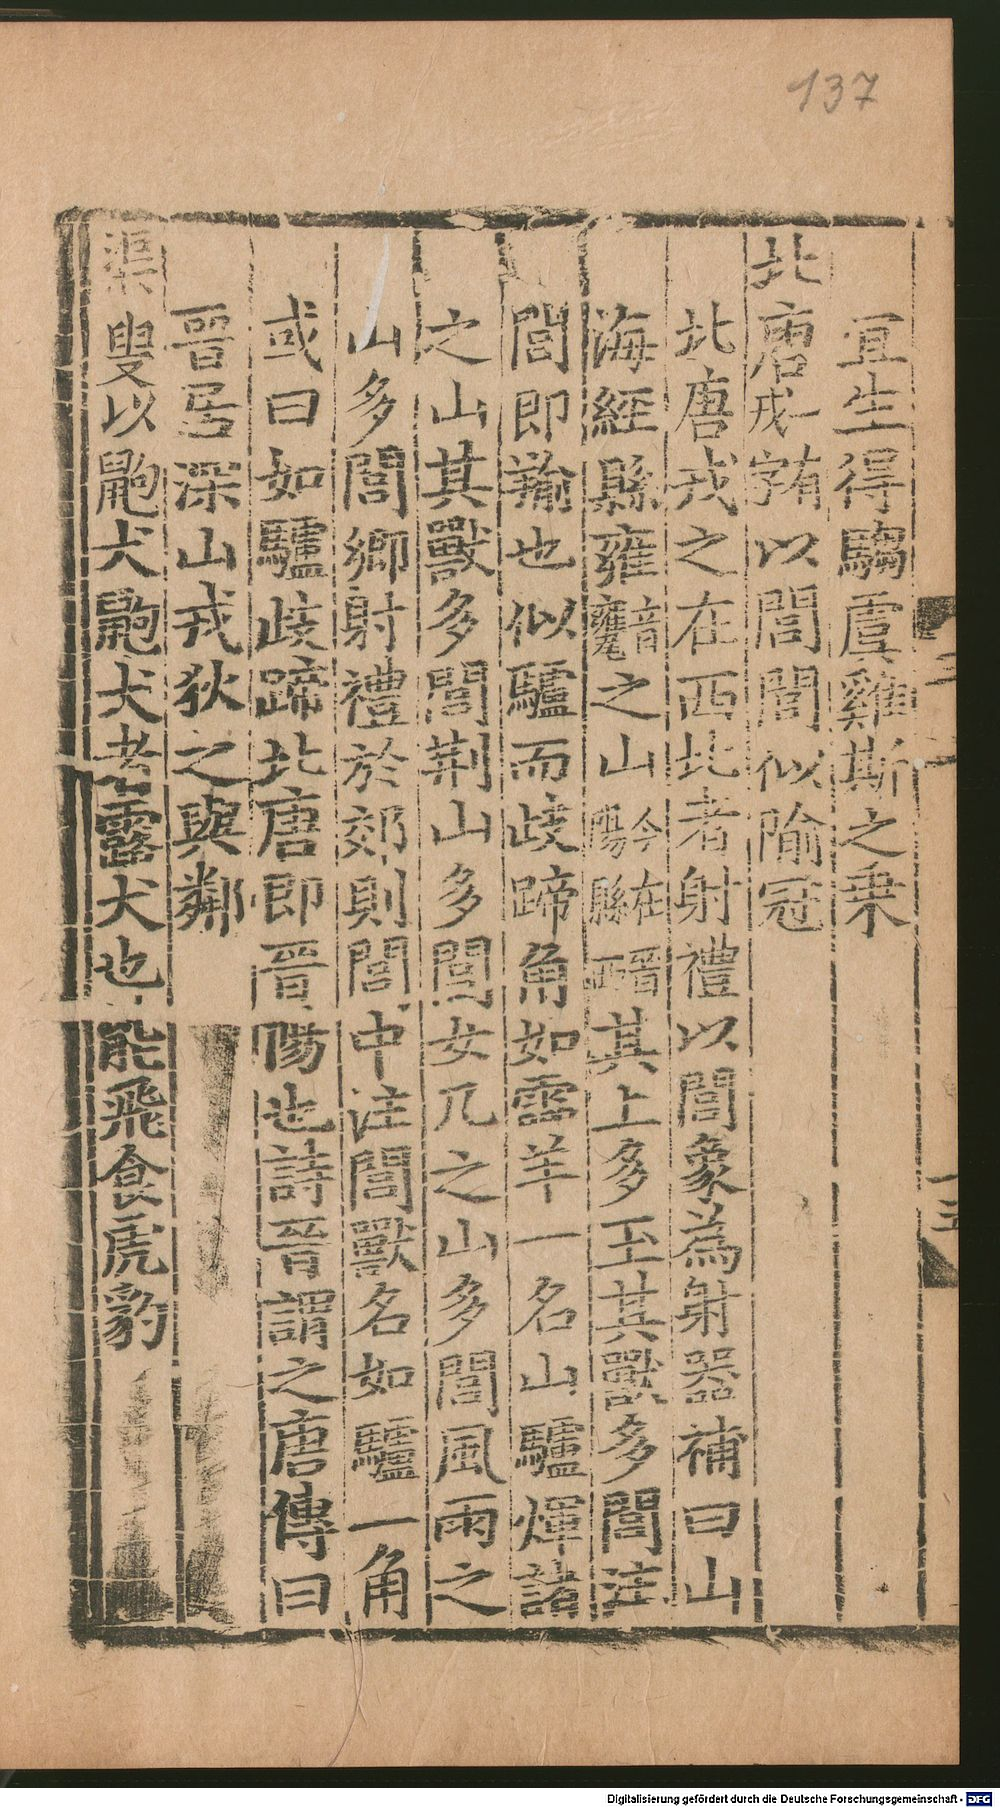 137
宜生得騶虞雞斯之乗
北唐戎一宥以閭閭似隃冠
北唐戎之在西北者射禮以閭象為射器補曰山
海經縣雍音甕之山今在晉陽縣西其上多玉其獸多閭注
閭即羭也似驢而歧蹄角如麢羊一名山驢煇諸
之山其獸多閭荆山多閭女几之山多閭風雨之
山多閭鄉射禮於郊則閭中注閭獸名如驢一角
或曰如驢歧蹄北唐即晉陽也詩晉謂之唐傳曰
晉居深山戎狄之與鄰
渠叟以鼩犬鼩犬者露犬也能飛食虎豹
十五
Digitalisierung gefördert durch die Deutsche Forschungsgemeinschaft - DFG